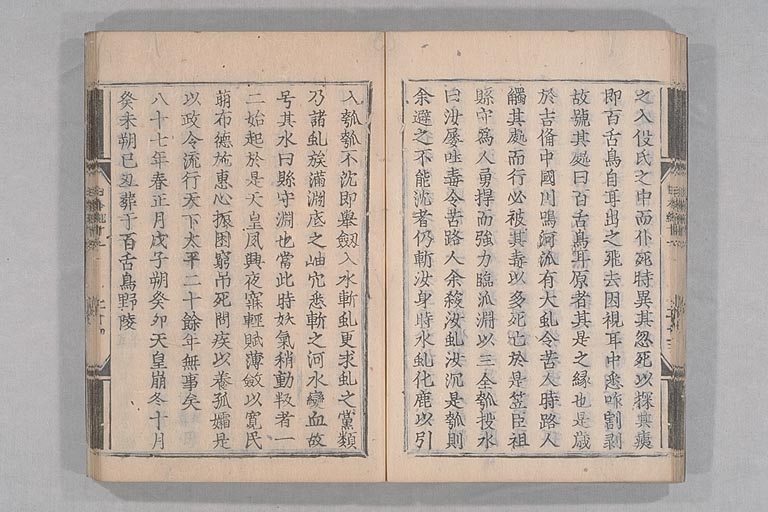 之入役民之中而仆死時異其忽死以探其痍
即百舌鳥自耳出之飛去因視耳中悉咋割剥
故號其處曰百舌鳥耳原者其是之縁也是歳
於吉備中國川嶋河泒有大虬令苦人時路人
觸其處而行必被其毒以多死亡於是笠臣祖
縣守爲人勇捍而強力臨泒淵以三全瓠投水
曰汝屡吐毒令苦路人余殺汝虬汝沉是瓠則
余避之不能沈者仍斬汝身時水虬化鹿以引
入瓠瓠不沈即舉劔入水斬虬更求虬之黨類
乃諸虬族滿淵底之岫穴悉斬之河水變血故
号其水曰縣守淵也當此時妖氣稍動叛者一
二始起於是天皇夙興夜寐輕賦薄斂以寛民
萌布德施惠以振困窮吊死問疾以養孤孀是
以政令流行天下太平二十餘年無事矣
八十七年春正月戊子朔癸卯天皇崩冬十月
癸未朔己丑葬于百舌鳥野陵